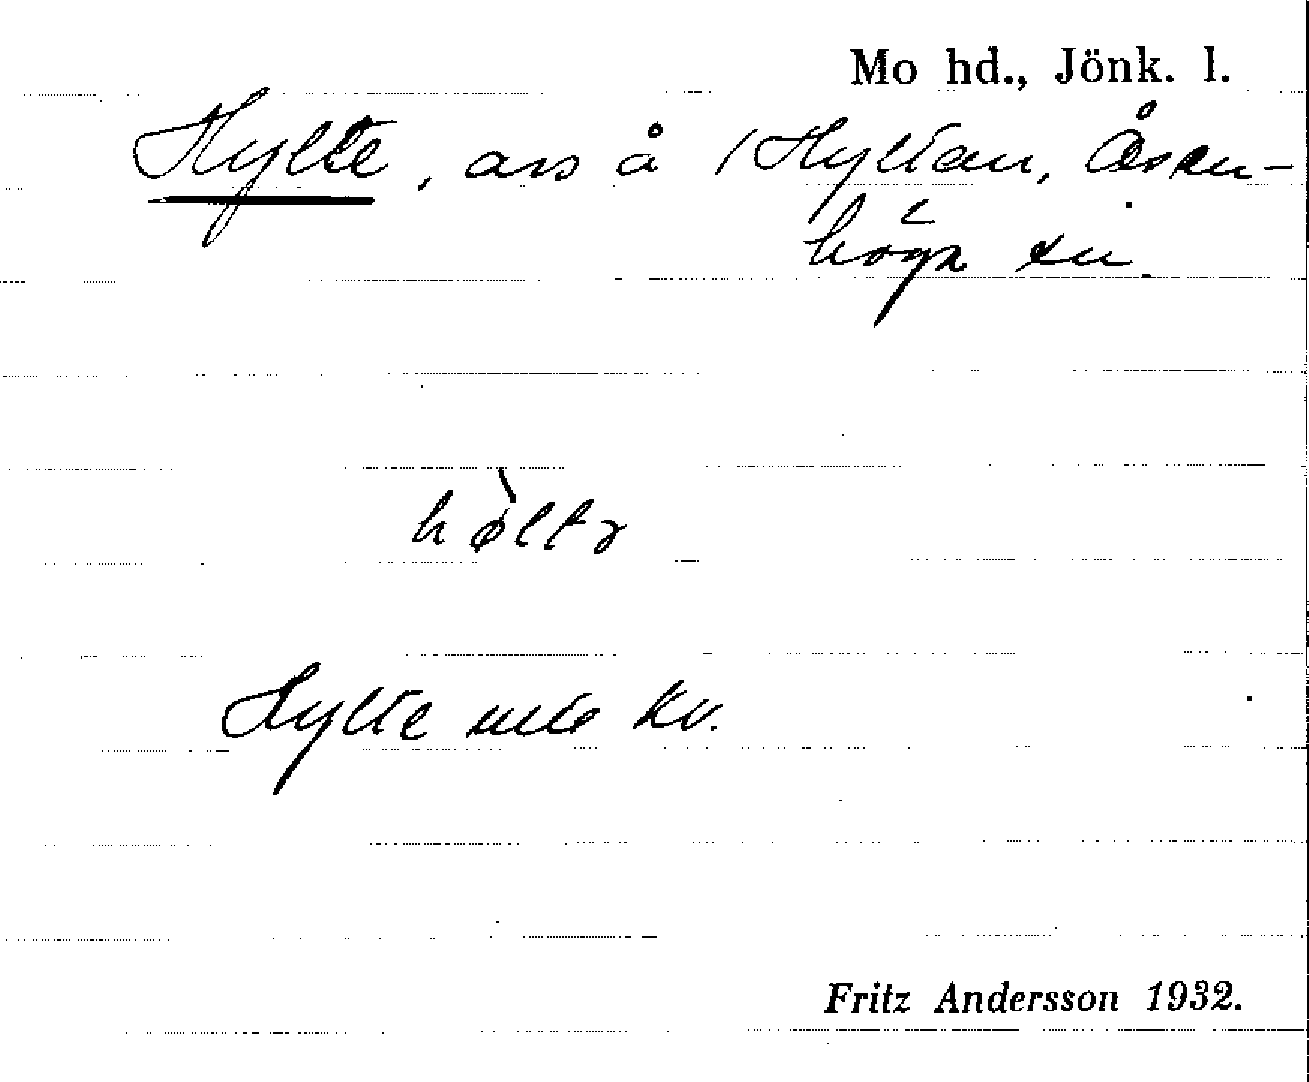 Mo hd., Jönk. l.
Hylte, avs å 1 Hyltan, Åsen-
höga sn.
hø̀ltə
Hylte kv.
Fritz Andersson 1932.